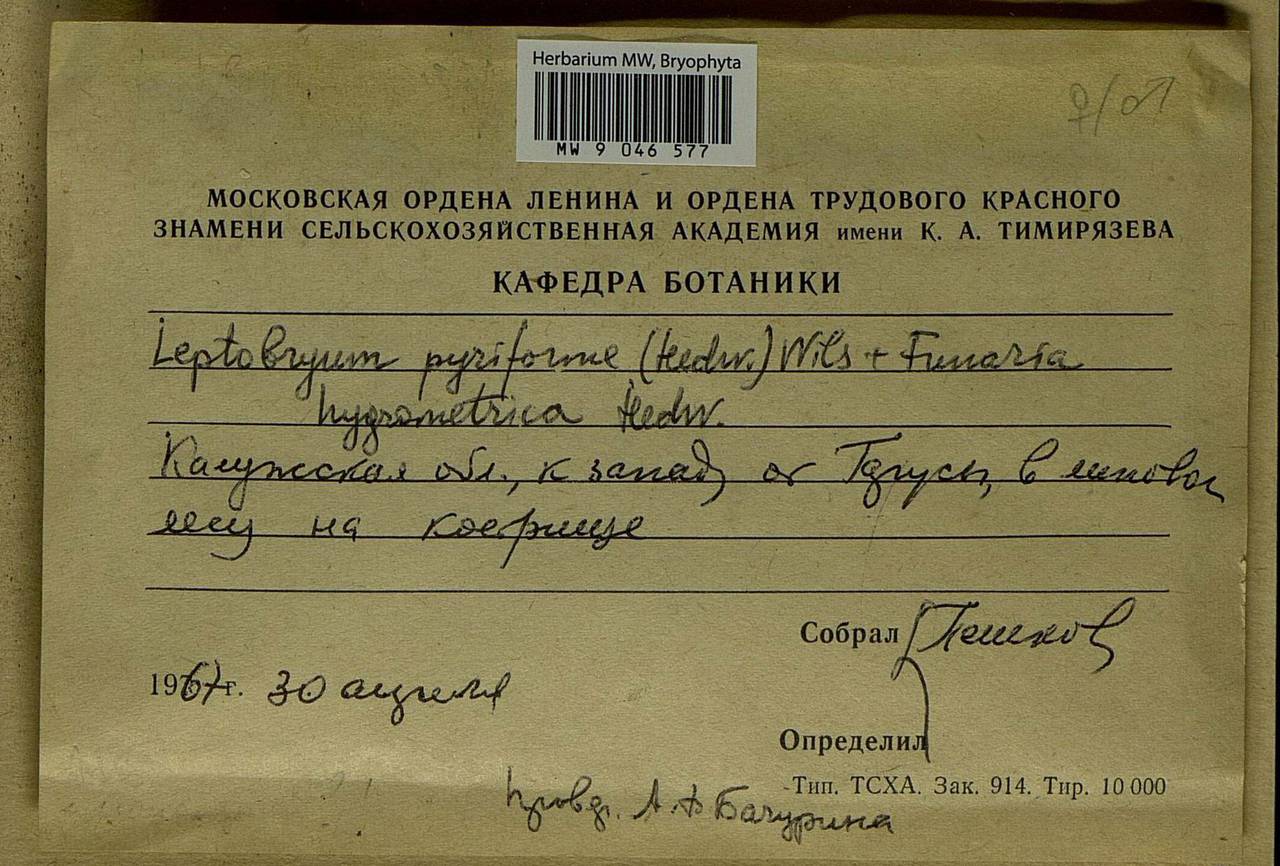 Herbarium MW, Bryophyta
MW 9 046 577
♀/♂
МОСКОВСКАЯ ОРДЕНА ЛЕНИНА И ОРДЕНА ТРУДОВОГО КРАСНОГО
ЗНАМЕНИ СЕЛЬСКОХОЗЯЙСТВЕННАЯ АКАДЕМИЯ имени К. А. ТИМИРЯЗЕВА
КАФЕДРА БОТАНИКИ
Leptobryum pyriforme (Hedw.) Wils + Funaria
hygrometrica Hedw.
Калужская обл., к западу от Тарусы, в липовом
лесу на кострище
Собрал Пешков
1967 г. 30 апреля
Определил
Тип. ТСХА. Зак. 914. Тир. 10 000
А. Ф. Бачурина